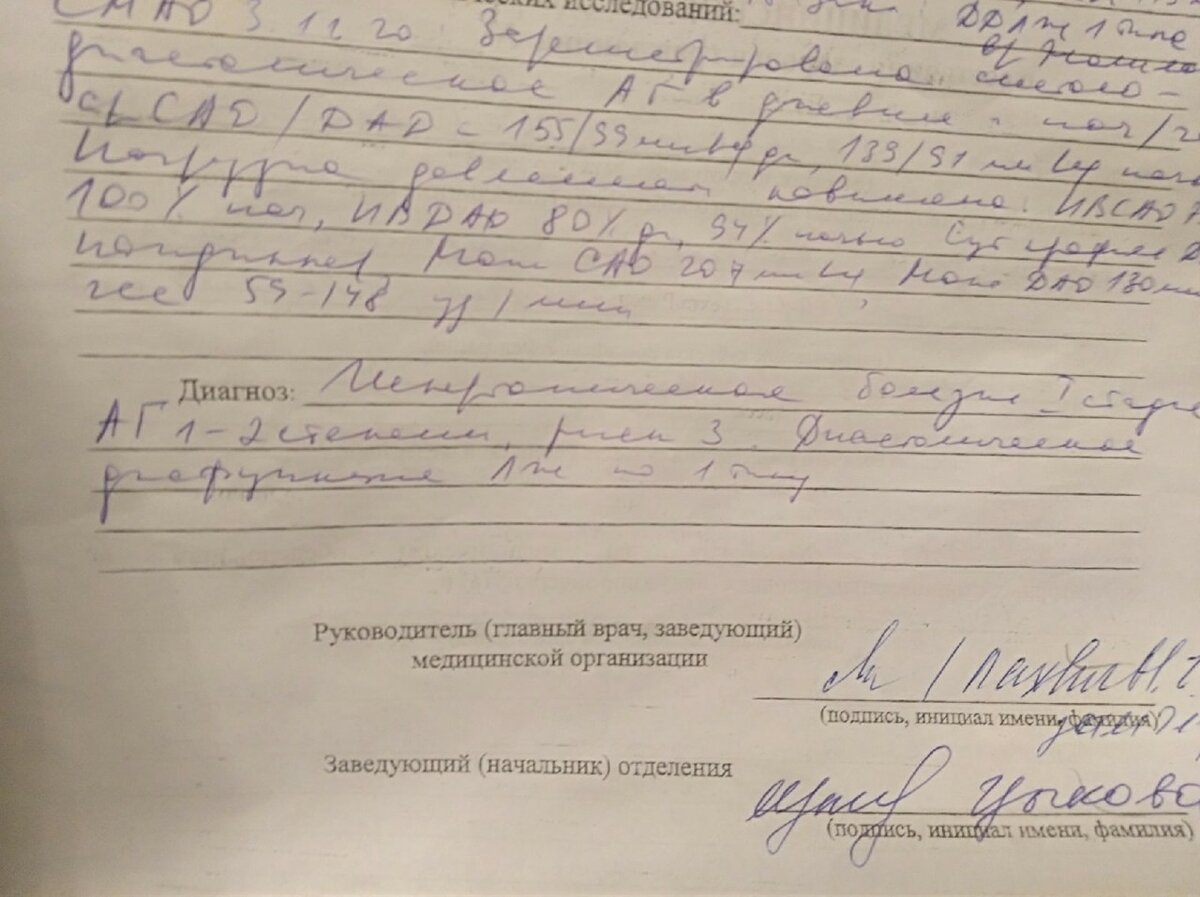 ических исследований: ДДЛЖ 1 типа
СМАД 3.12 го Зарегистрирована систоло-
диастолическая АГ в дневные и ноч/
ср САД/ДАД = 155/99 мм Hg дн, 139/91 мм Hg ночь
Нагрузка давлением повышена. ИВСАД
100% ноч, ИВДАД 80% дн, 94% ночью Сут профиль
нондиппер Макс САД 207 мм Hg Макс ДАД 130 мм
ЧСС 59-148 уд/мин
Диагноз: Гипертоническая болезнь I стадия
АГ 1-2 степени, риск 3. Диастолическая
дисфункция ЛЖ по 1 типу
Руководитель (главный врач, заведующий)
медицинской организации
(подпись, инициал имени, фамилия)
Заведующий (начальник) отделения
(подпись, инициал имени, фамилия)